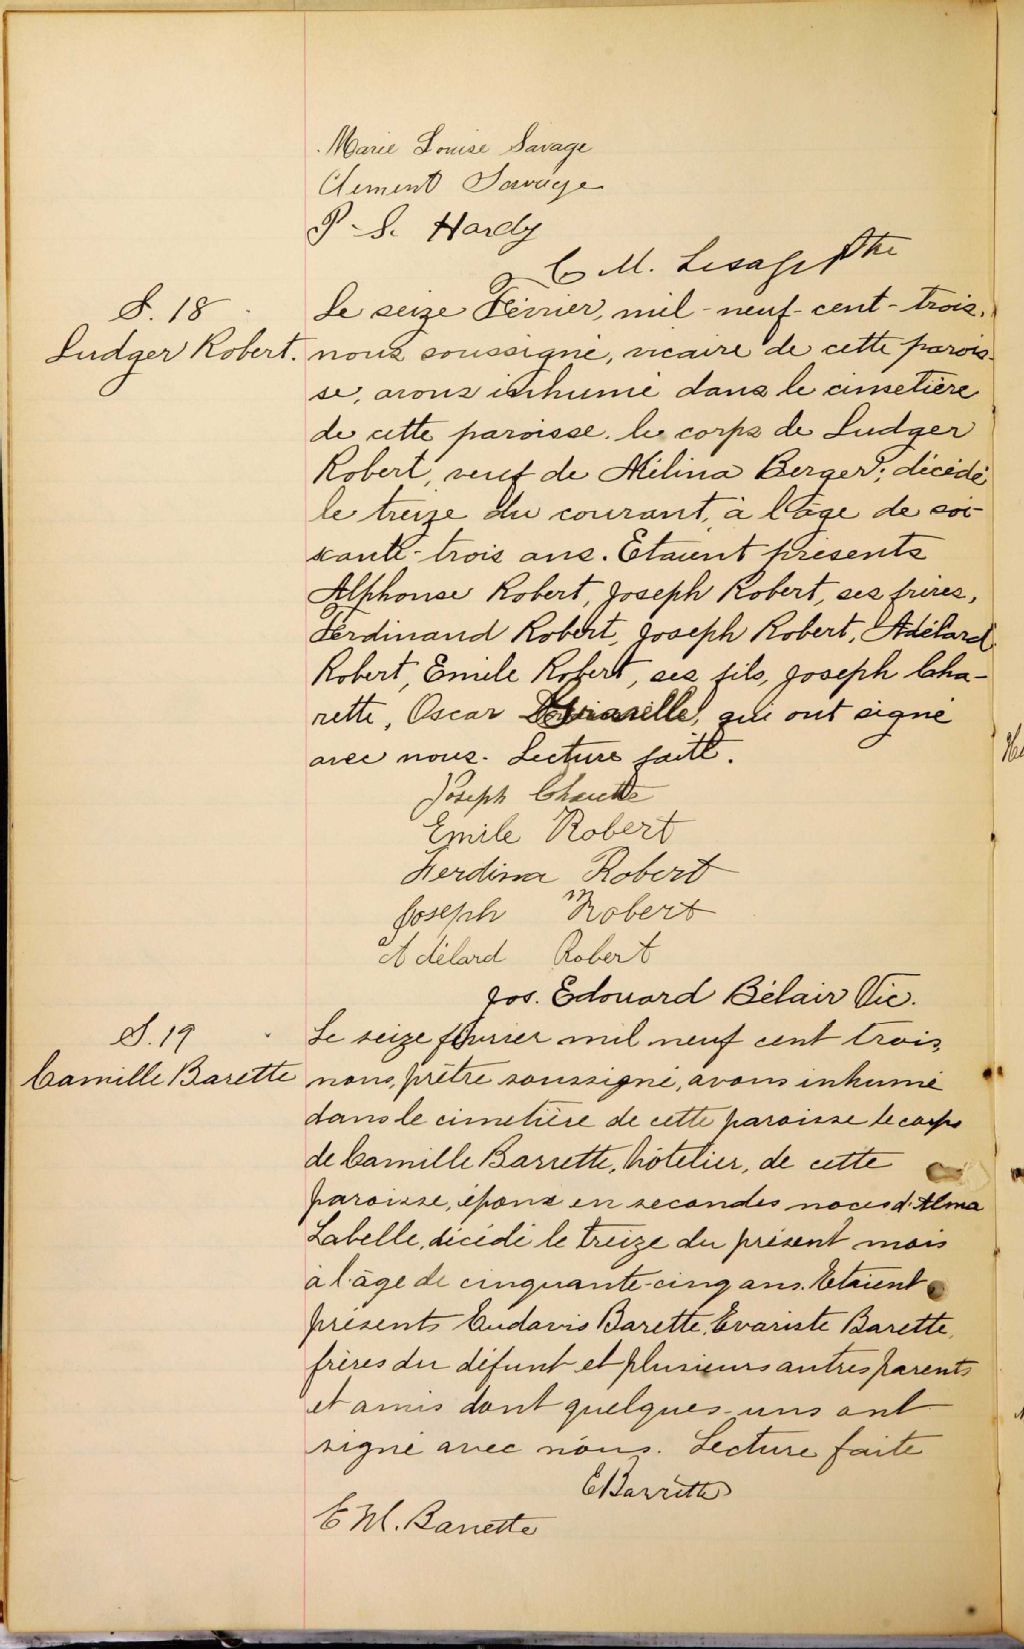 Marie Louise Savage
Clement Savage
P. S. Hardy
C M. Lesage Ptre
S. 18
Ludger Robert.
Le seize Février, mil-neuf-cent-trois,
nous soussigné, vicaire de cette parois-
se, avons inhumé dans le cimetière
de cette paroisse, le corps de Ludger
Robert, veuf de Mélina Berger; décédé
le treize du courant, à l'âge de soi-
xante-trois ans. Etaient présents
Alphonse Robert, Joseph Robert, ses frères,
Ferdinand Robert, Joseph Robert, Adélard
Robert, Emile Robert, ses fils, Joseph Cha-
rette, Oscar qui ont signé
avec nous. Lecture faite.
Joseph Charette
Emile Robert
Ferdina Robert
Joseph Robert
Adélard Robert
Jos. Edouard Bélair Vic.
S. 19
Camille Barette
Le seize février mil neuf cent trois,
nous, prêtre soussigné, avons inhumé
dans le cimetière de cette paroisse le corps
de Camille Barrette, hôtelier, de cette
paroisse, époux en secondes noces d'Alma
Labelle, décédé le treize du présent mois
à l'âge de cinquante-cinq ans. Etaient
présents Eudavis Barette, Evariste Barette,
frères du défunt et plusieurs autres parents
et amis dont quelques-uns ont
signé avec nous. Lecture faite
E Barrette
E M. Barrette